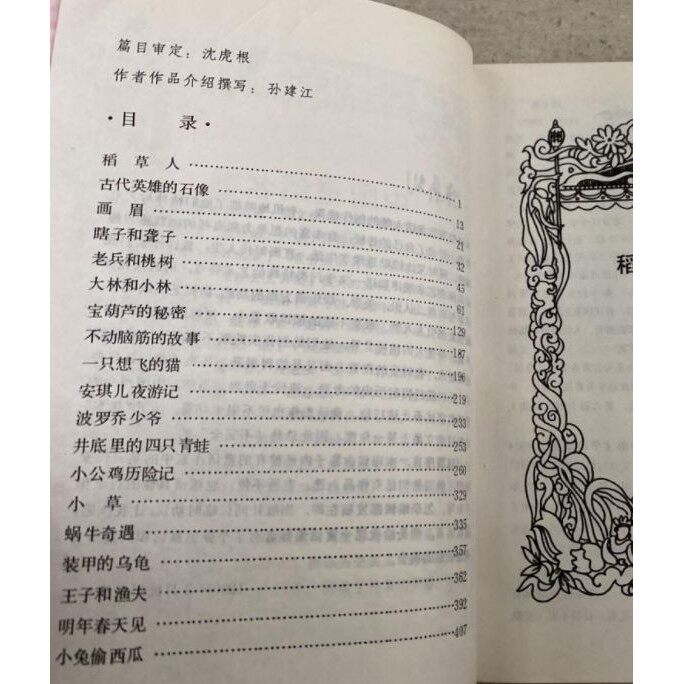 篇目审定：沈虎根
作者作品介绍撰写：孙建江
·目 录·
稻草人……1
古代英雄的石像……13
画眉……21
瞎子和聋子……32
老兵和桃树……45
大林和小林……61
宝葫芦的秘密……129
不动脑筋的故事……187
一只想飞的猫……196
安琪儿夜游记……219
波罗乔少爷……233
井底里的四只青蛙……253
小公鸡历险记……260
小草……329
蜗牛奇遇……335
装甲的乌龟……357
王子和渔夫……362
明年春天见……392
小兔偷西瓜……407
稻